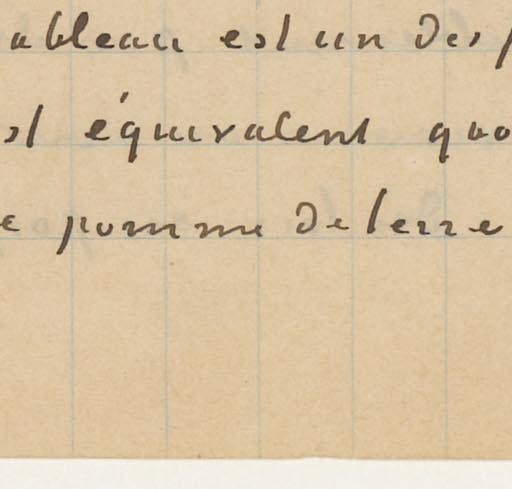 ableau est un des
st équivalent quo
e pomme de terre